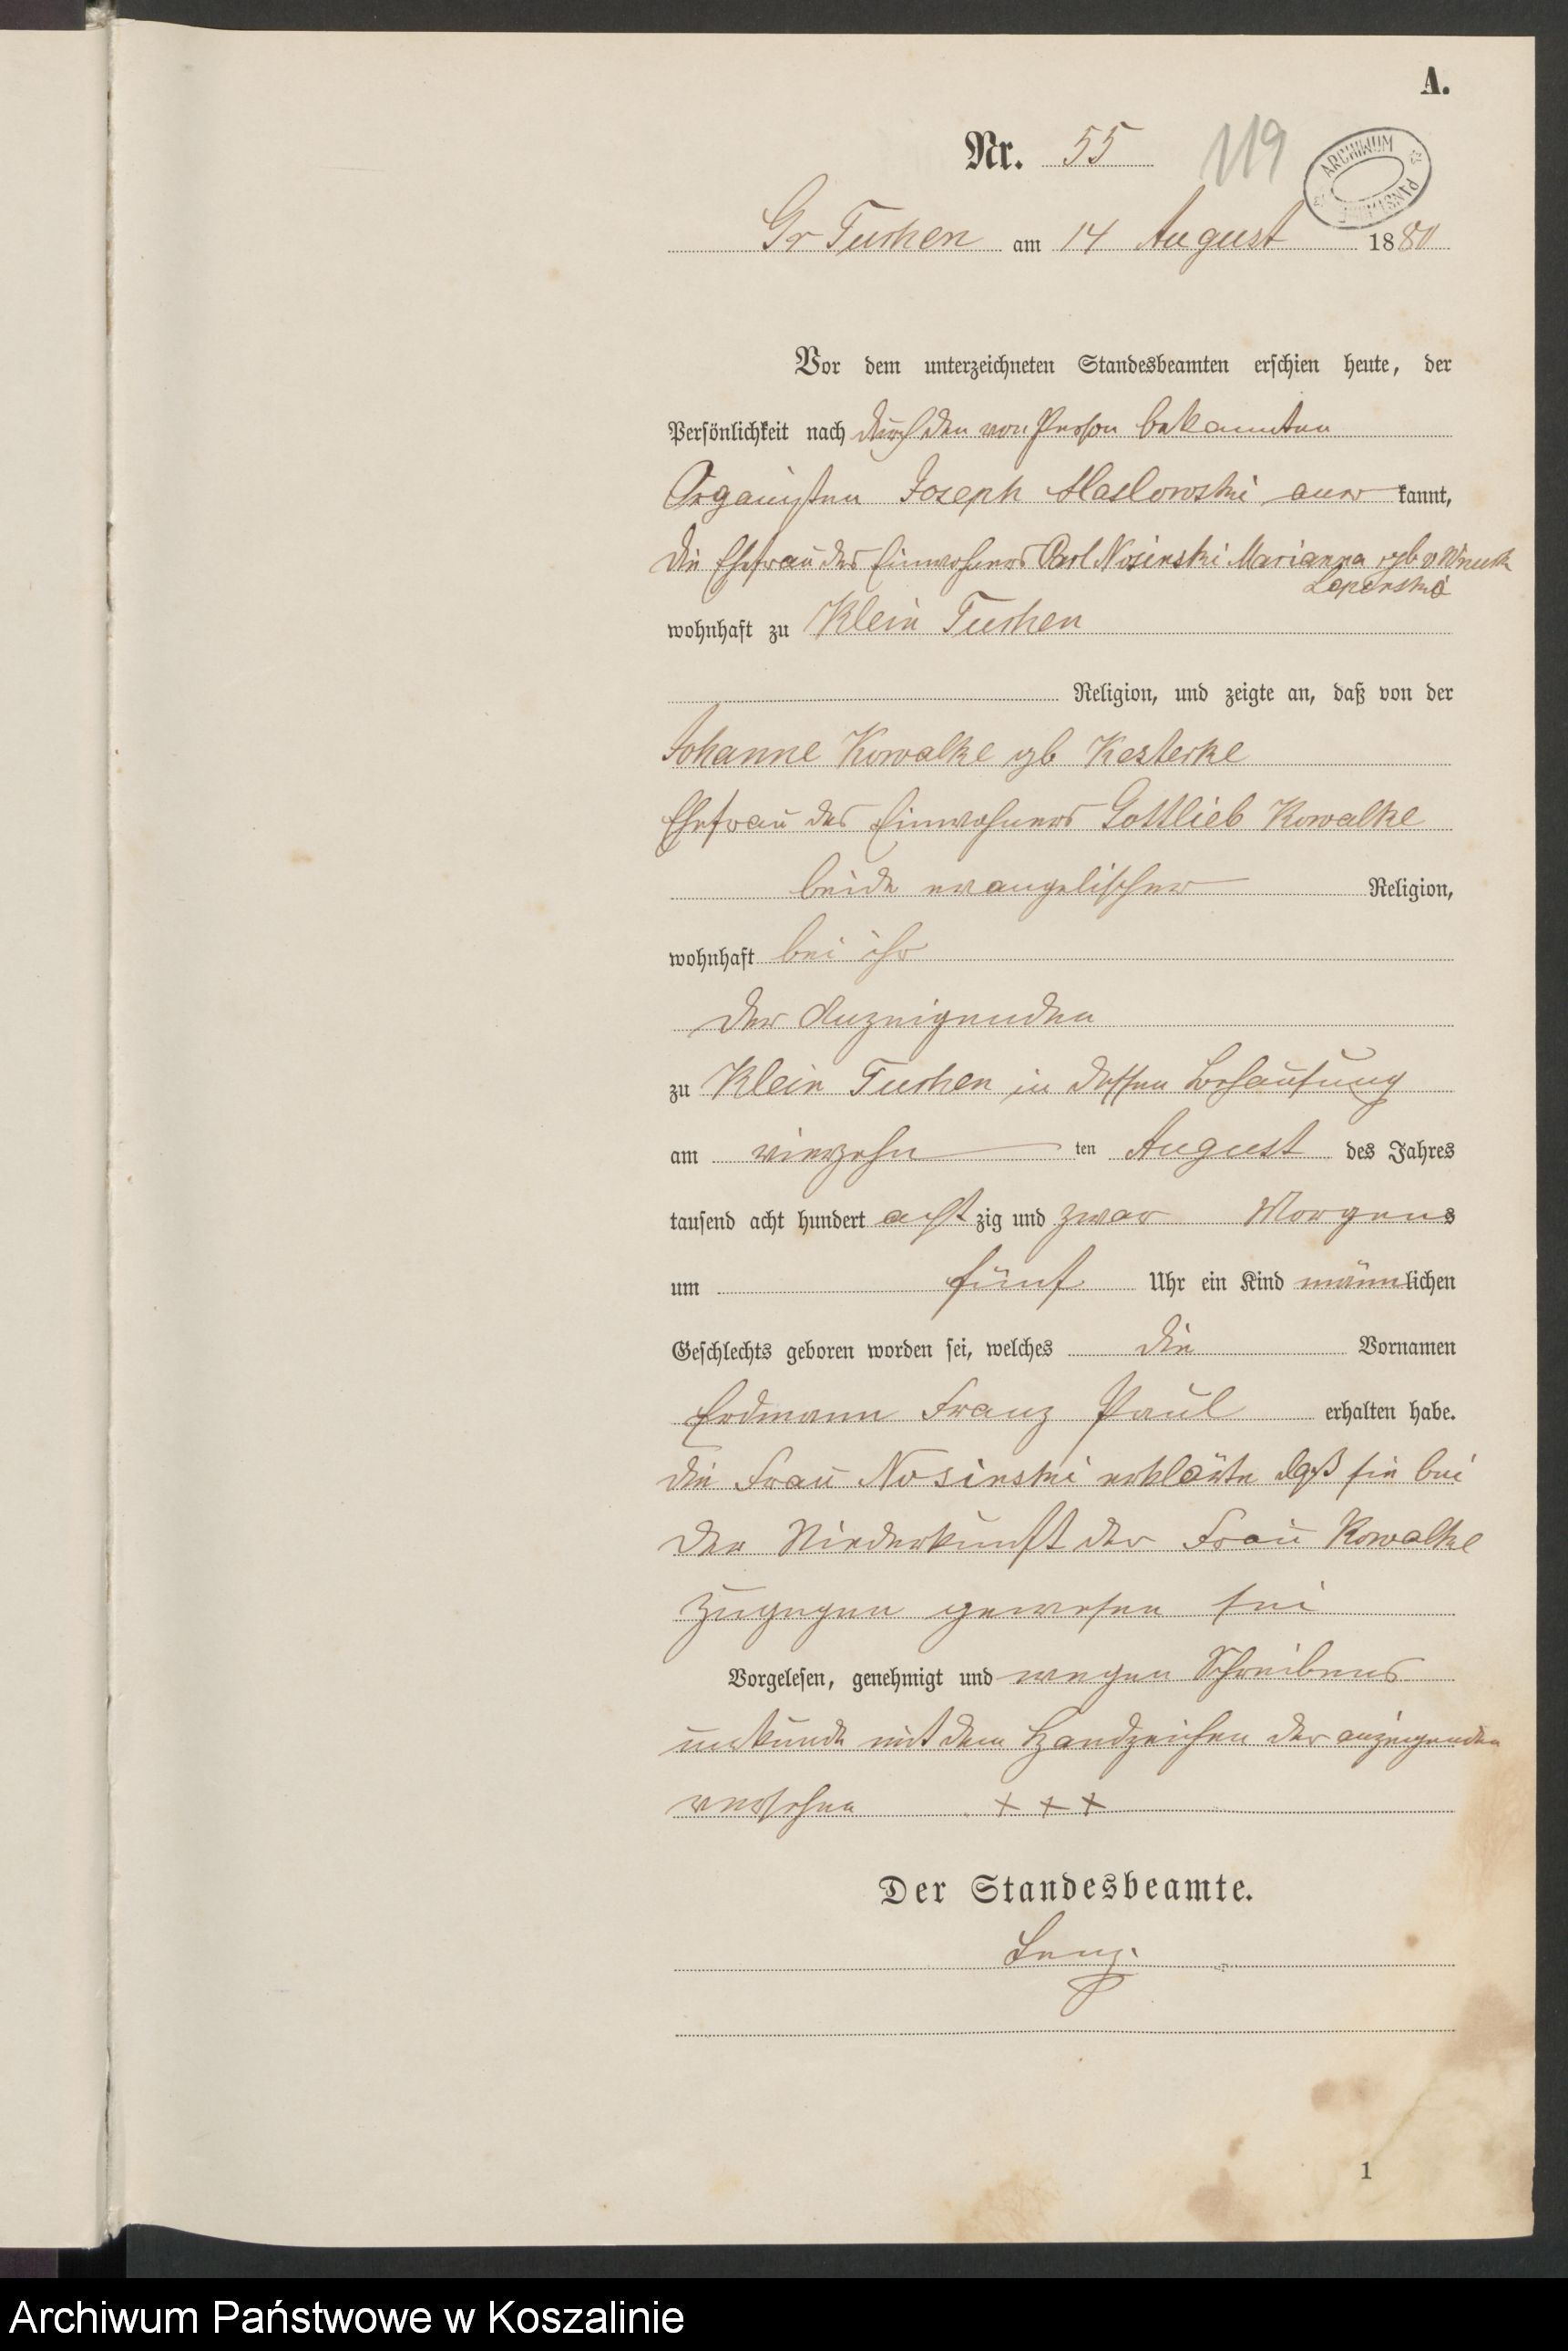 A.
Nr. 55 119
ARCHIWUM PAŃSTWOWE
Gr Tuchen am 14 August 1880
Vor dem unterzeichneten Standesbeamten erschien heute, der
Persönlichkeit nach durch den von Person bekannten
Organisten Joseph Maslowski aner kannt,
die Ehefrau des Einwohners Carl Nosinski Marianna geb v
wohnhaft zu Klein Tuchen
Religion, und zeigte an, daß von der
Johanne Kowalke gb Kesterke
Ehefrau des Einwohners Gottlieb Kowalke
beide evangelischer Religion,
wohnhaft bei ihr
der Anzeigenden
zu Klein Tuchen in dessen Behausung
am vierzehn ten August des Jahres
tausend acht hundert acht zig und zwar Morgens
um fünf Uhr ein Kind männlichen
Geschlechts geboren worden sei, welches die Vornamen
Erdmann Franz Paul erhalten habe.
die Frau Nosinski erklärte daß sie bei
der Niederkunft der Frau Kowalke
zugegen gewesen sei
Vorgelesen, genehmigt und wegen Schreibens
unkunde mit dem Handzeichen der anzeigenden
versehen + + +
Der Standesbeamte.
Lenz.
1
Archiwum Państwowe w Koszalinie